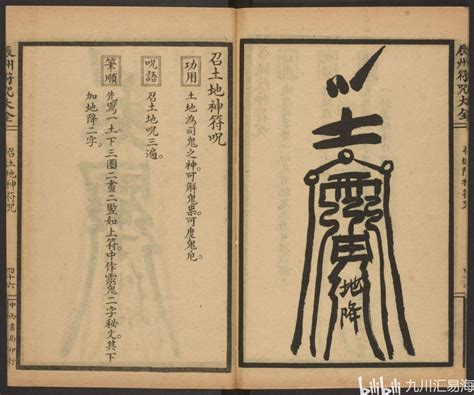 辰州符咒大全
召土地神符咒
召土地神符咒
功用
土地為司鬼之神可解鬼祟可度鬼厄
咒語
召土地咒三遍
筆順
先寫一土下三圈二畫二豎如上符中作靈鬼二字秘文其下
加地降二字
四十六
中西書局印行
辰州符咒大全
土
地降
bilibili
九川汇易海